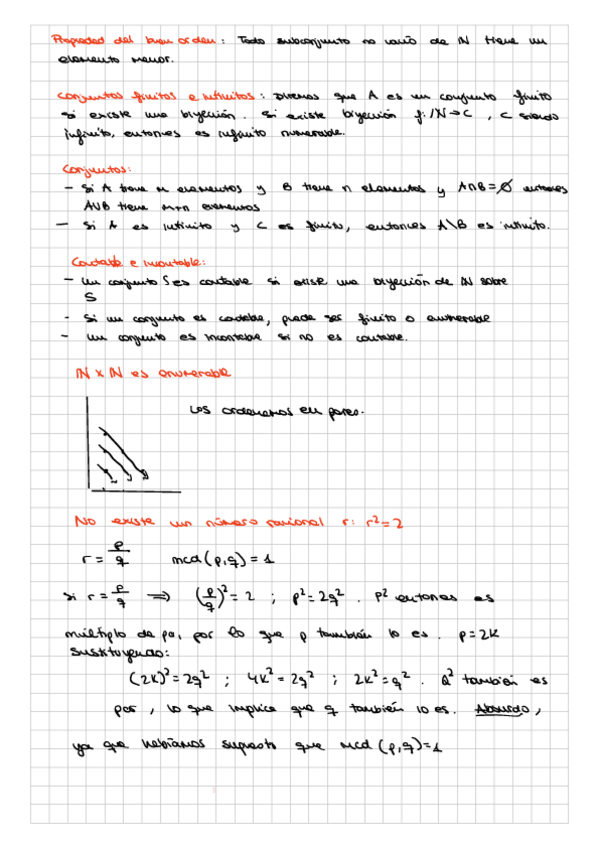 Propiedad del buen orden: Todo subconjunto no vacío de ℕ tiene un
elemento menor.
Conjuntos finitos e infinitos: Diremos que A es un conjunto finito
si existe una biyección. Si existe biyección f: ℕ → C, C siendo
infinito, entonces es infinito numerable.
Conjuntos:
- Si A tiene m elementos y B tiene n elementos y A∩B=∅ entonces
A∪B tiene m+n elementos
- Si A es infinito y C es finito, entonces A\B es infinito.
Contable e incontable:
- Un conjunto S es contable si existe una biyección de ℕ sobre
S
- Si un conjunto es contable, puede ser finito o enumerable
- Un conjunto es incontable si no es contable.
ℕ x ℕ es enumerable
Los ordenamos en pares.
No existe un número racional r: r²=2
r = p/q mcd(p,q)=1
Si r = p/q ⟹ (p/q)² = 2 ; p²=2q². p² entonces es
múltiplo de po, por lo que p también lo es. p=2k
Sustituyendo:
(2k)²=2q² ; 4k²=2q² ; 2k²=q². Q² también es
par, lo que implica que q también lo es. Absurdo,
ya que habíamos supuesto que mcd(p,q)=1